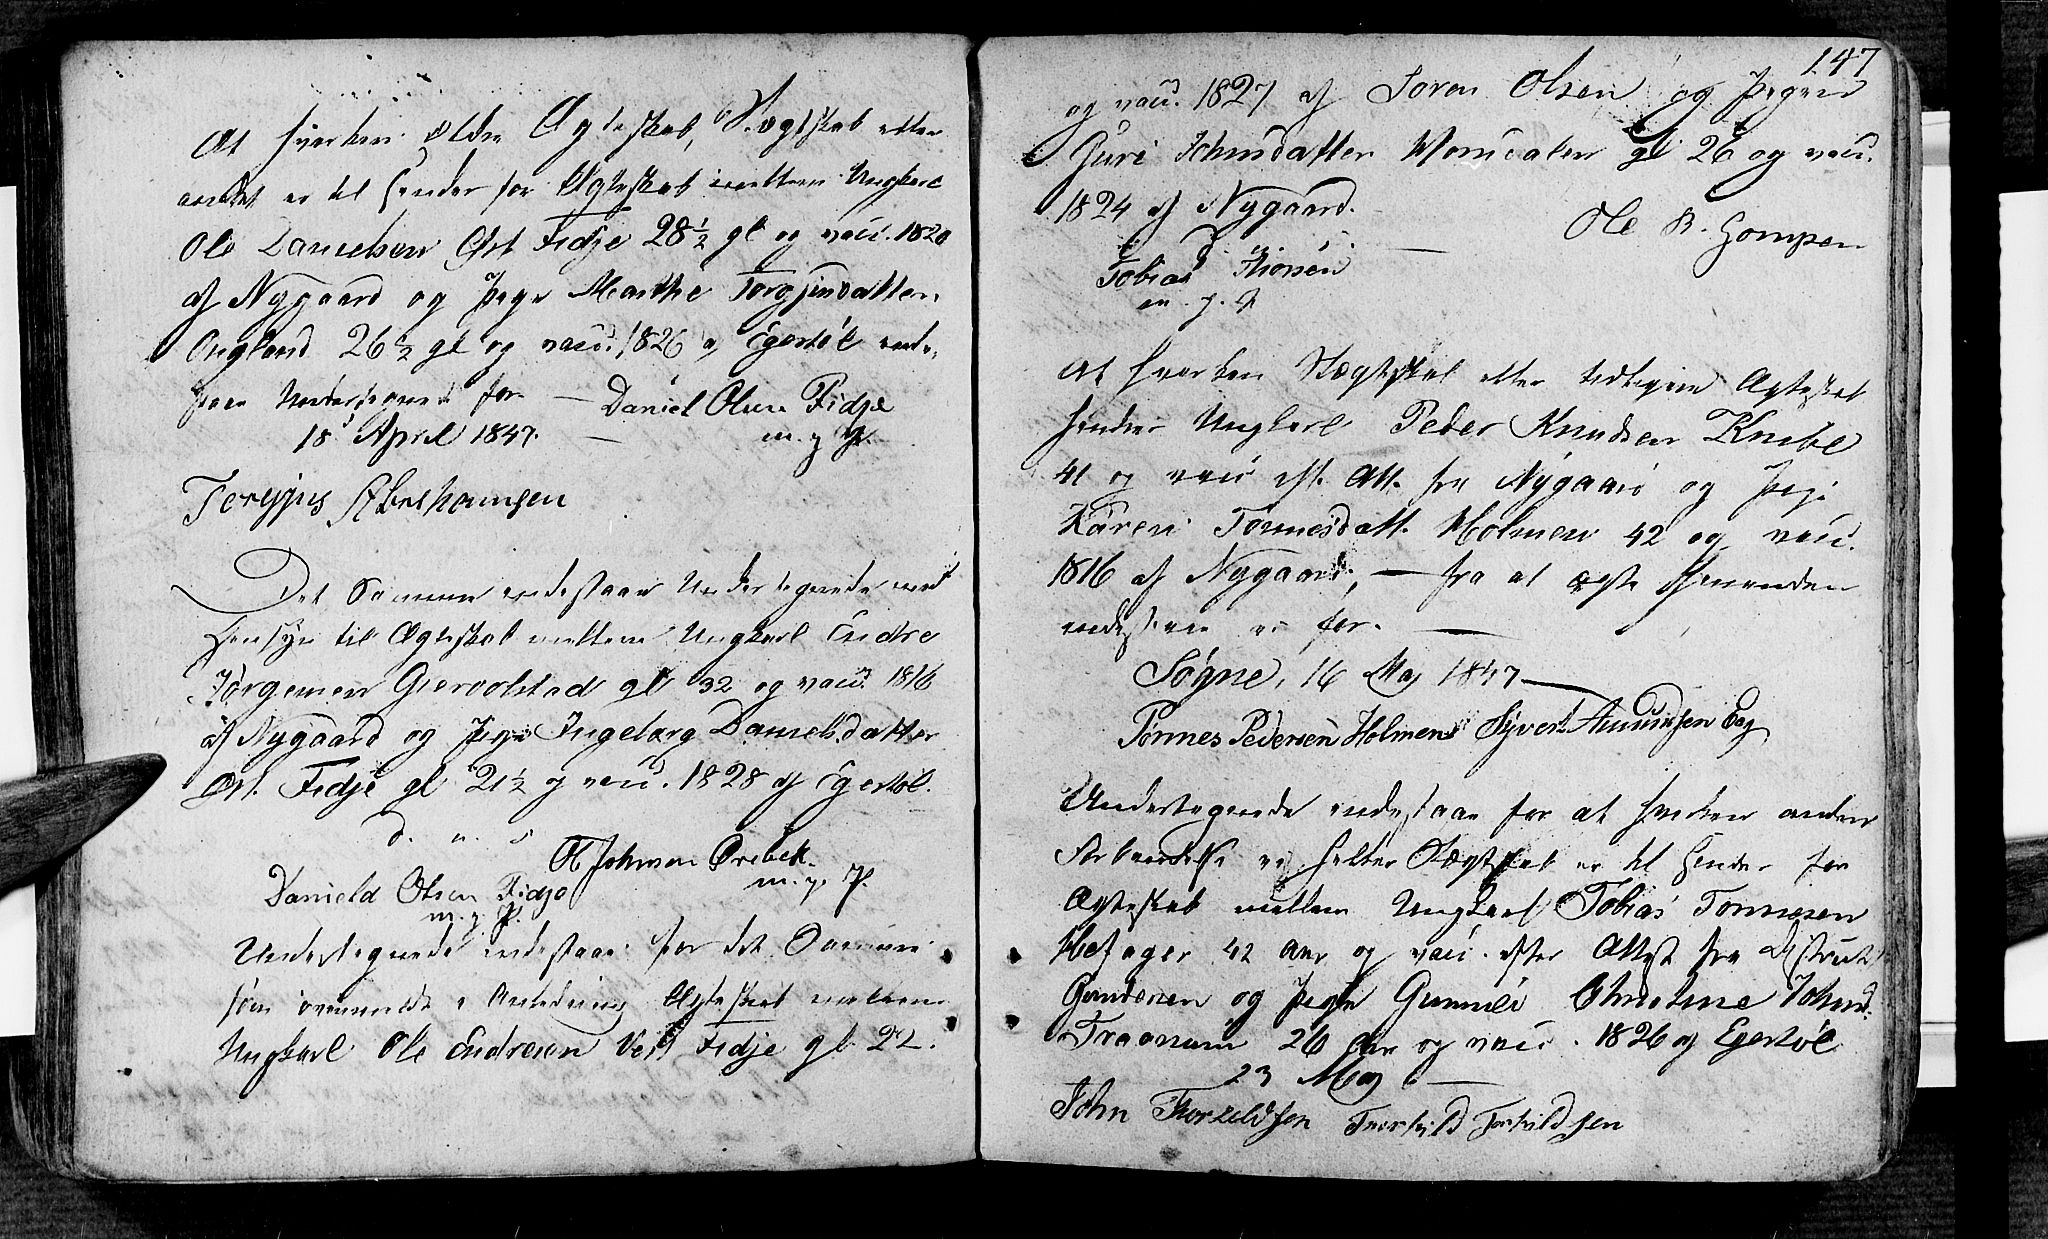 At hverken ældre Ægteskab, Slægtskab eller
andet er til Hinder for Ægteskab mellem Ungkarl
Ole Danielsen Øst Fidje 28 1/2 gl og vacc. 1820
af Nygaard og Pige Marthe Torgjusdatter
Augland 26 1/2 gl og vacc. 1826 af Egeröl inde-
staar Undertegnede for. —
Daniel Olsen Fidje
18 April 1847. — m. f. P.
Terjus Abrahamsen
Det Samme indestaar Undertegnede med
Hensyn til Ægteskab mellem Ungkarl Endre
Jörgensen Gjervolstad gl 32 og vacc. 1816
af Nygaard og Pige Ingeborg Danielsdatter
Øst. Fidje gl 21 1/2 og vacc. 1828 af Egeröl.
d. u. s
Johnsen Ørebek
m. f. P.
Daniel Olsen Fidje
m. f. P.
Undertegnede indestaar for det Samme
som ovenmeldt i Anledning Ægteskab mellem
Ungkarl Ole Endresen Vest Fidje gl 22.
147
og vacc. 1827 af Soren Olsen og Pigen
Guri Johnsdatter gl 26 og vacc.
1824 af Nygaard. —
Ole R. Hompen
Tobias
m. f. P
At hverken Slægtskab eller tidligere Ægteskab
hindrer Ungkarl Peder Knudsen Knibe
41 og vacc eft. Att. fra Nygaard og Pige
Karen Tønnesdatt. Holmen 42 og vacc.
1816 af Nygaard, — fra at ægte hinanden
indestaae vi for. —
Søgne, 16 Maj 1847 —
Tønnes Pedersen Holmen Syvert Amundsen Eeg
Undertegnede indestaar for at hverken anden
Forbindelse ei heller Slægtskab er til Hinder for
Ægteskab mellem Ungkarl Tobias Tønnesen
Klefager 42 Aar og vacc. efter Attest fra Distrikts
Gundersen og Pige Gunnild Christine Johnsd.
Traanum 26 Aar og vacc. 1826 af Egeröl
23 Maj —
John Thorkeldsen Thorkild Torkildsen